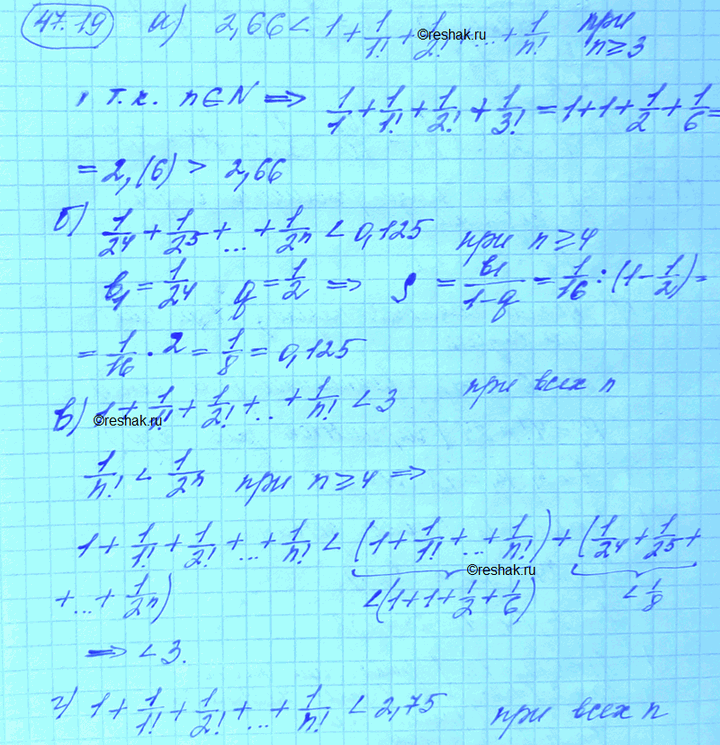 47.19 а) 2,66 < 1 + 1/1! + 1/2! + ... + 1/n! при n ≥ 3
©reshak.ru
, т.к. n ∈ N => 1/1 + 1/1! + 1/2! + 1/3! = 1 + 1 + 1/2 + 1/6 =
= 2,(6) > 2,66
б) 1/24 + 1/25 + ... + 1/2n < 0,125 при n ≥ 4
b1 = 1/24 q = 1/2 => S = b1/(1-q) = 1/16 : (1 - 1/2) =
= 1/16 · 2 = 1/8 = 0,125
в) 1 + 1/1! + 1/2! + .. + 1/n! < 3 при всех n
©reshak.ru
1/n! < 1/2n при n ≥ 4 =>
1 + 1/1! + 1/2! + ... + 1/n! < (1 + 1/1! + ... + 1/n!) + (1/24 + 1/25 +
©reshak.ru
+ ... + 1/2n) <(1 + 1 + 1/2 + 1/6) < 1/8
=> < 3.
г) 1 + 1/1! + 1/2! + ... + 1/n! < 2,75 при всех n